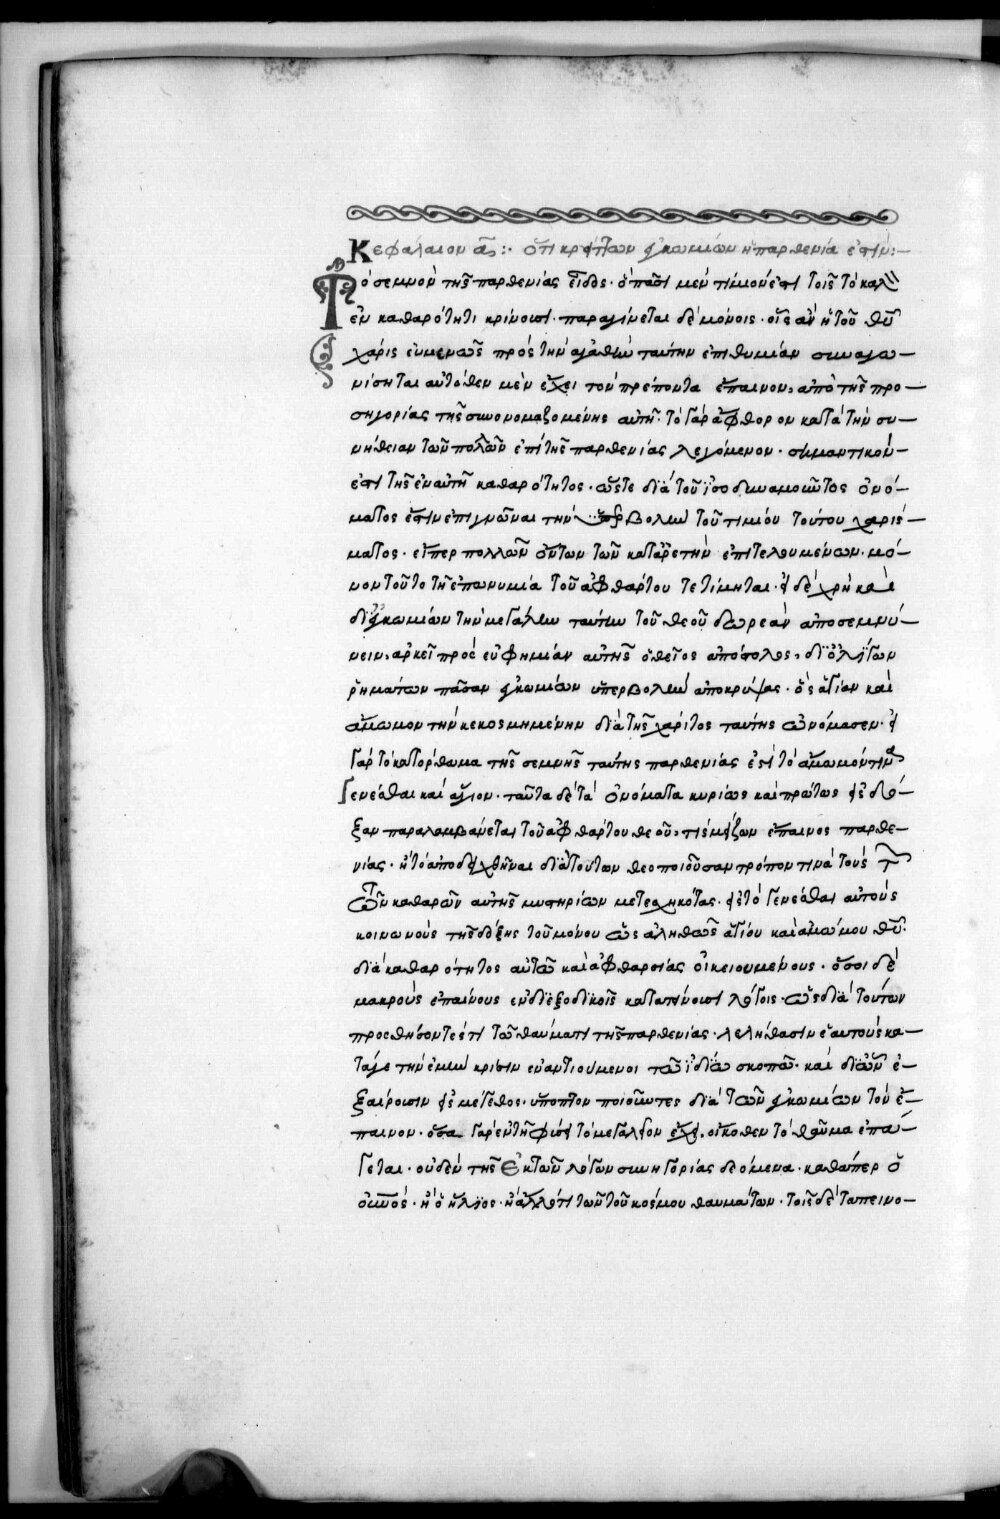 Κεφάλαιον αον:· ὅτι κρείττων ἐγκωμίων ἡ παρθενία ἐστίν:—
Τὸ σεμνὸν τῆς παρθενίας εἶδος· ὃ πᾶσι μὲν τίμιόν ἐστι τοῖς τὸ καλὸν
ἐν καθαρότητι κρίνουσι· παραγίνεται δὲ μόνοις· οἷς ἂν ἡ τοῦ θῦ
χάρις εὐμενῶς πρὸς τὴν ἀγαθὴν ταύτην ἐπιθυμίαν συναγω—
νίσηται αὐτόθεν μὲν ἔχει τὸν πρέποντα ἔπαινον, ἀπὸ τῆς προ—
σηγορίας τῆς συνονομαζομένης αὐτῇ· τὸ γὰρ ἄφθορον κατὰ τὴν συ—
νήθειαν τῶν πολλῶν ἐπὶ τῆς παρθενίας λεγόμενον· σημαντικόν—
ἐστι τῆς ἐν αὐτῇ καθαρότητος· ὥστε διὰ τοῦ ἰσοδυναμοῦντος ὀνό—
ματος ἔστιν ἐπιγνῶναι τὴν ὑπερβολὴν τοῦ τιμίου τούτου χαρίσ—
ματος· εἴπερ πολλῶν ὄντων τῶν κατ' ἀρετὴν ἐπιτελουμένων· μό—
νον τοῦτο τῇ ἐπωνυμία τοῦ ἀφθάρτου τετίμηται· εἰ δὲ χρὴ καὶ
δι' ἐγκωμίων τὴν μεγάλην ταύτην τοῦ θεοῦ δωρεὰν ἀποσεμνύ—
νειν, ἀρκεῖ πρὸς εὐφημίαν αὐτῆς ὁ θεῖος ἀπόστολος, δι' ὀλίγων
ῥημάτων πᾶσαν ἐγκωμίων ὑπερβολὴν ἀποκρύψας· ὃς ἁγίαν καὶ
ἄμωμον τὴν κεκοσμημένην διὰ τῆς χάριτος ταύτης ὠνόμασεν· εἰ
γὰρ τὸ κατόρθωμα τῆς σεμνῆς ταύτης παρθενίας ἐστὶ τὸ ἄμωμόν τινα
γενέσθαι καὶ ἅγιον· ταῦτα δὲ τὰ ὀνόματα κυρίως καὶ πρώτως εἰς δό—
ξαν παραλαμβάνεται τοῦ ἀφθάρτου θεοῦ, τίς μείζων ἔπαινος παρθε—
νίας· ἢ τὸ ἀποδειχθῆναι διὰ τούτων θεοποιοῦσαν τρόπον τινὰ τοὺς τ
ῶν καθαρῶν αὐτῆς μυστηρίων μετεσχηκότας· εἰς τὸ γενέσθαι αὐτοὺς
κοινωνοὺς τῆς δόξης τοῦ μόνου ὡς ἀληθῶς ἁγίου καὶ ἀμώμου θῦ·
διὰ καθαρότητος αὐτῶ καὶ ἀφθαρσίας οἰκειουμένους· ὅσοι δὲ
μακροὺς ἐπαίνους ἐν διεξοδικοῖς κατατείνουσι λόγοις· ὡς διὰ τούτων
προσθήσοντές τι τῶ θαύματι τῆς παρθενίας· λελήθασιν ἑαυτοὺς κα—
τά γε τὴν ἐμὴν κρίσιν ἐναντιούμενοι τῶ ἰδίω σκοπῶ· καὶ δι' ὧν ἐ—
ξαίρουσιν εἰς μέγεθος· ὕποπτον ποιοῦντες διὰ τῶν ἐγκωμίων τὸν ἔ—
παινον· ὅσα γὰρ ἐν τῇ φύσει τὸ μεγαλεῖον ἔχει, οἴκοθεν τὸ θαῦμα ἐπά—
γεται· οὐδὲν τῆς ἐκ τῶν λόγων συνηγορίας δεόμενα· καθάπερ ὁ
οὐνὸς· ἢ ὁ ἥλιος· ἢ ἄλλό τι τῶν τοῦ κόσμου θαυμάτων· τοῖς δὲ ταπεινο—